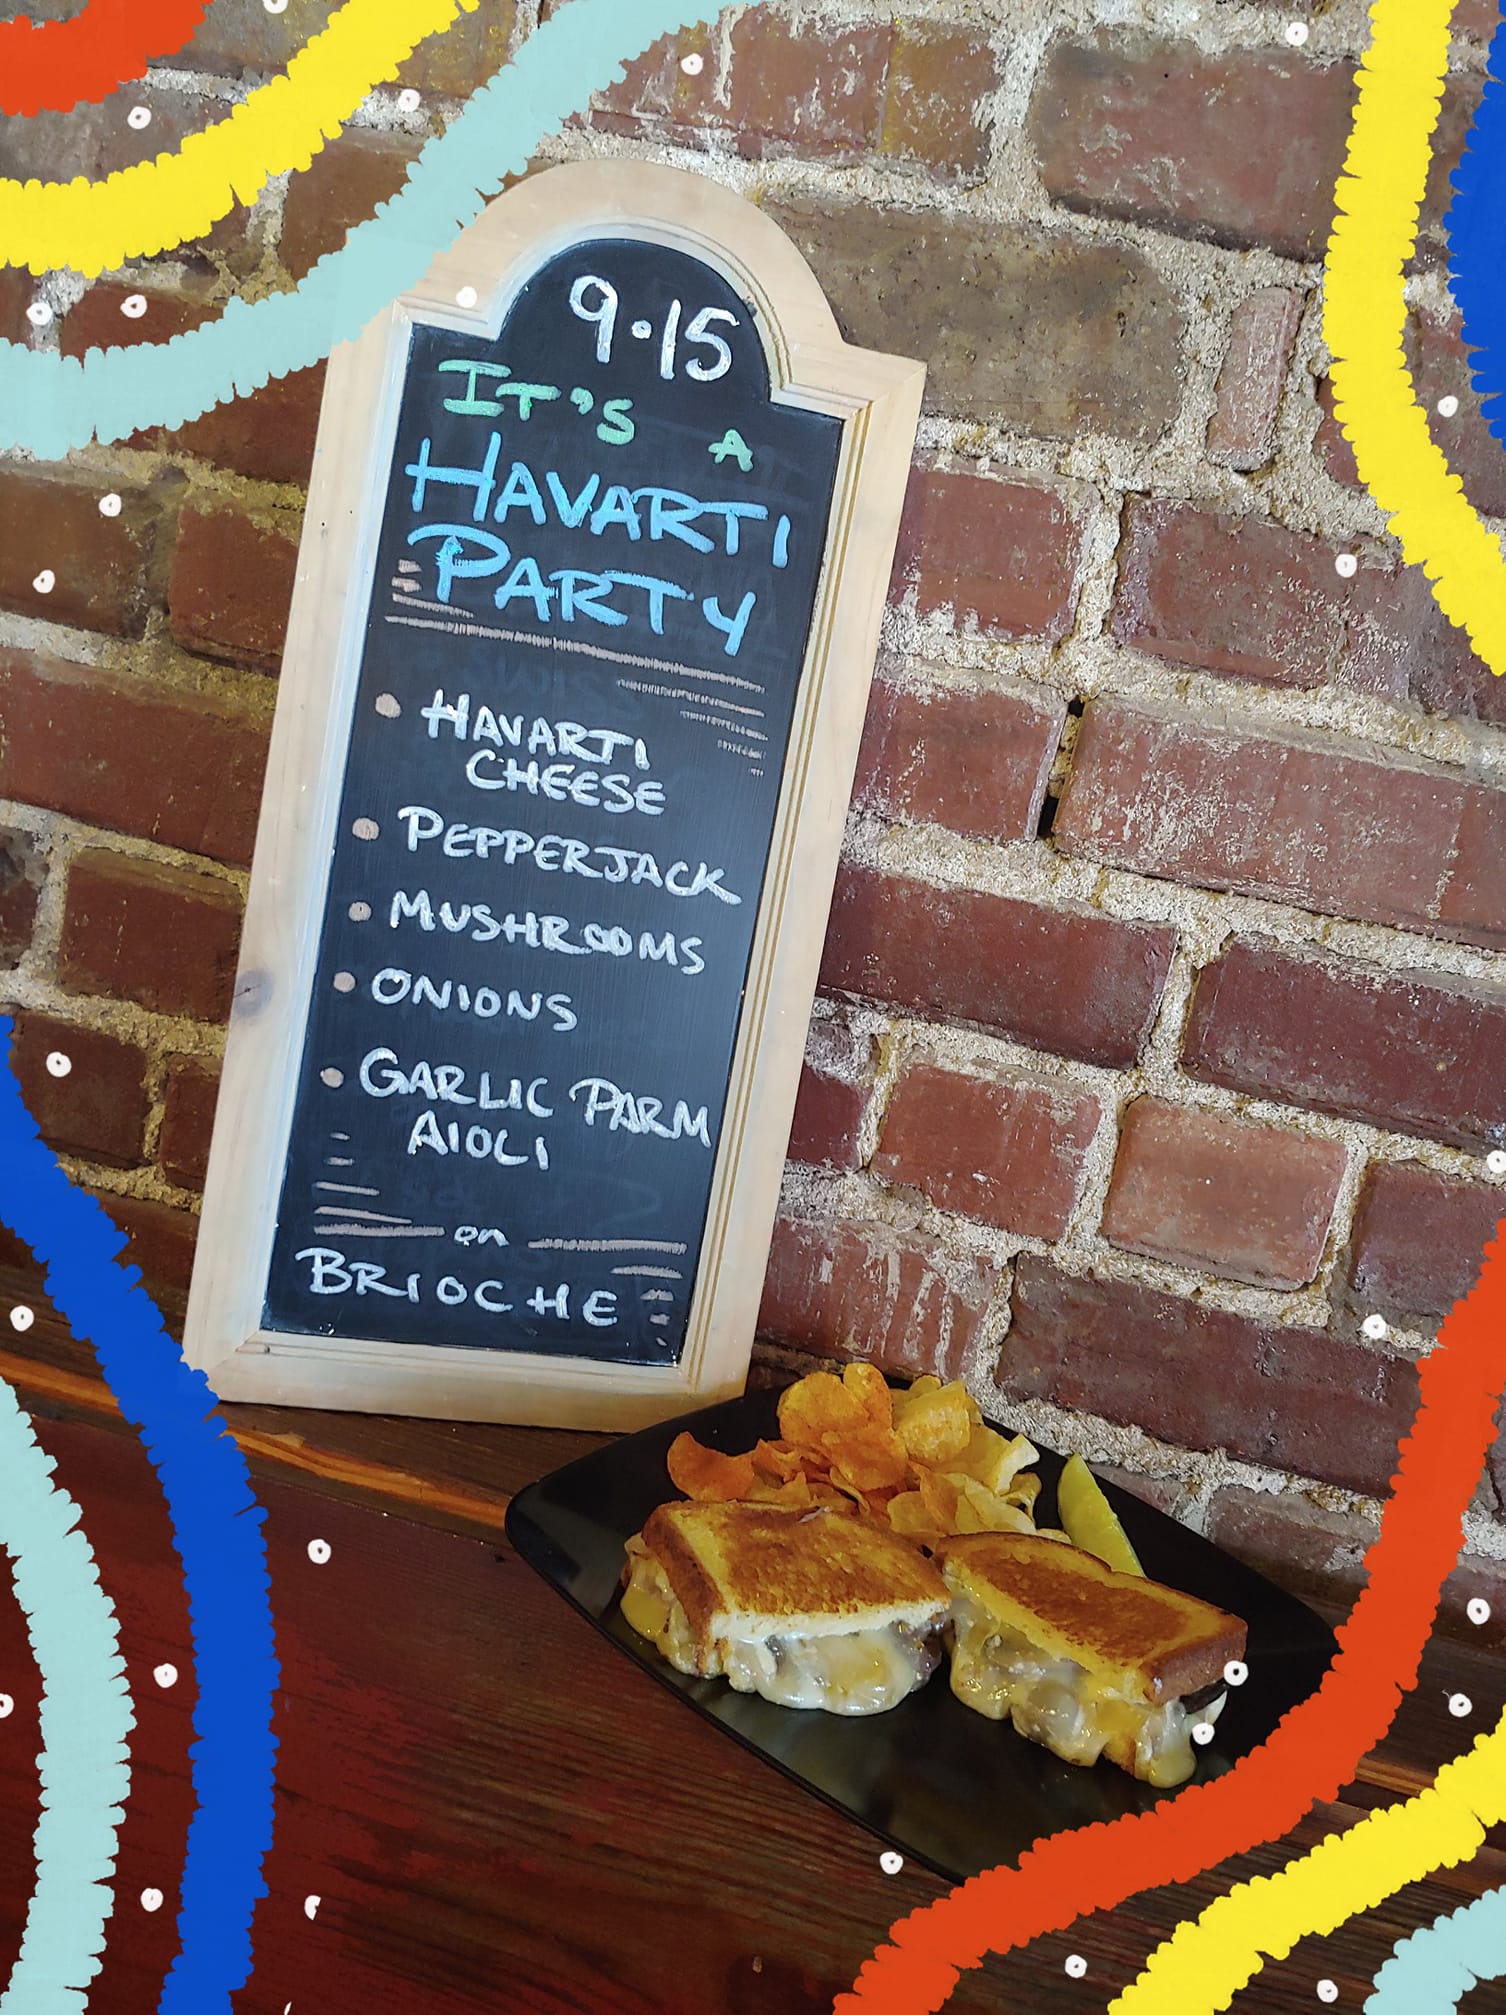 9.15
IT'S A
HAVARTI
PARTY
HAVARTI
CHEESE
PEPPERJACK
MUSHROOMS
ONIONS
GARLIC PARM
AIOLI
on
BRIOCHE